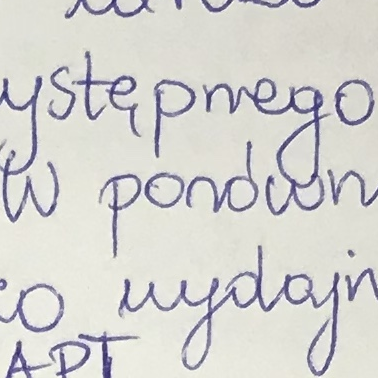 ystępnego
W porówn
co wydajn
APT